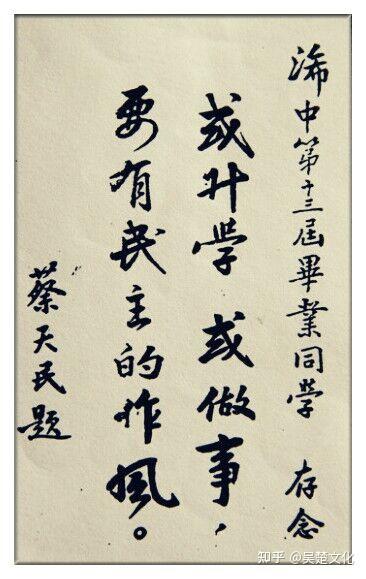 浠中第十三届畢業同学 存念
或升学 或做事，
要有民主的作風。
蔡天民題
知乎 @吴楚文化